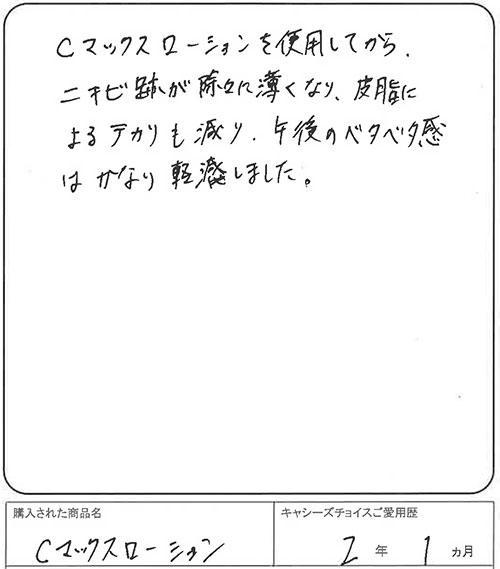 Cマックスローションを使用してから、
ニキビ跡が除々に薄くなり、皮脂に
よるテカリも減り、午後のベタベタ感
はかなり軽減しました。
購入された商品名
キャシーズチョイスご愛用歴
Cマックスローション
2年1ヵ月